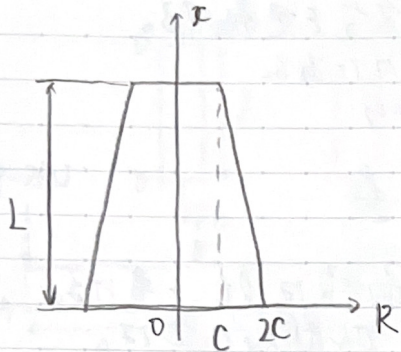 x
L
0
C
2C
R